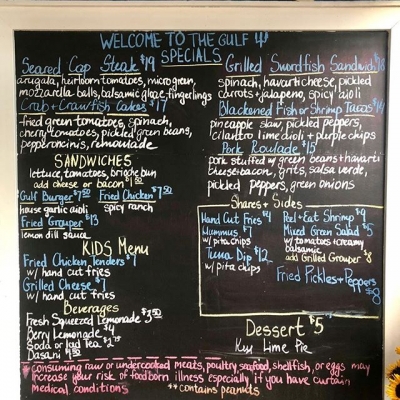 WELCOME TO THE GULF
SPECIALS
Seared Cap Steak $19
arugala, heirloom tomatoes, micro green,
mozzarella balls, balsamic glaze, fingerlings
Crab + Crawfish Cakes $17
fried green tomatoes, spinach,
cherry tomatoes, pickled green beans,
pepperoncinis, remoulade
SANDWICHES
lettuce, tomatoes, brioche bun
add cheese or bacon $1.50
Gulf Burger $7.50 Fried Chicken $7.50
house garlic aioli spicy ranch
Fried Grouper $13
lemon dill sauce
KIDS Menu
Fried Chicken Tenders $7
w/ hand cut fries
Grilled Cheese $7
w/ hand cut fries
Beverages
Fresh Squeezed Lemonade $3.50
Berry Lemonade $4
Soda or Iced Tea
Dasani
Grilled Swordfish Sandwich
spinach, havarti cheese, pickled
carrots + jalapeno, spicy aioli
Blackened Fish or Shrimp Tacos $14
pineapple slaw, pickled peppers,
cilantro lime aioli + purple chips
Pork Roulade $15
pork stuffed w/ green beans + havarti
cheese + bacon, grits, salsa verde,
pickled peppers, green onions
Shares + Sides
Hand Cut Fries $4
Hummus $7
w/ pita chips
Tuna Dip $12
w/ pita chips
Peel + Eat Shrimp $9
Mixed Green Salad $5
w/ tomatoes + creamy
balsamic
add Grilled Grouper $8
Fried Pickles + Peppers
$8
Dessert $5
Key Lime Pie
* consuming raw or undercooked meats, poultry, seafood, shellfish, or eggs may
increase your risk of foodborn illness especially if you have curtain
medical conditions ** contains peanuts